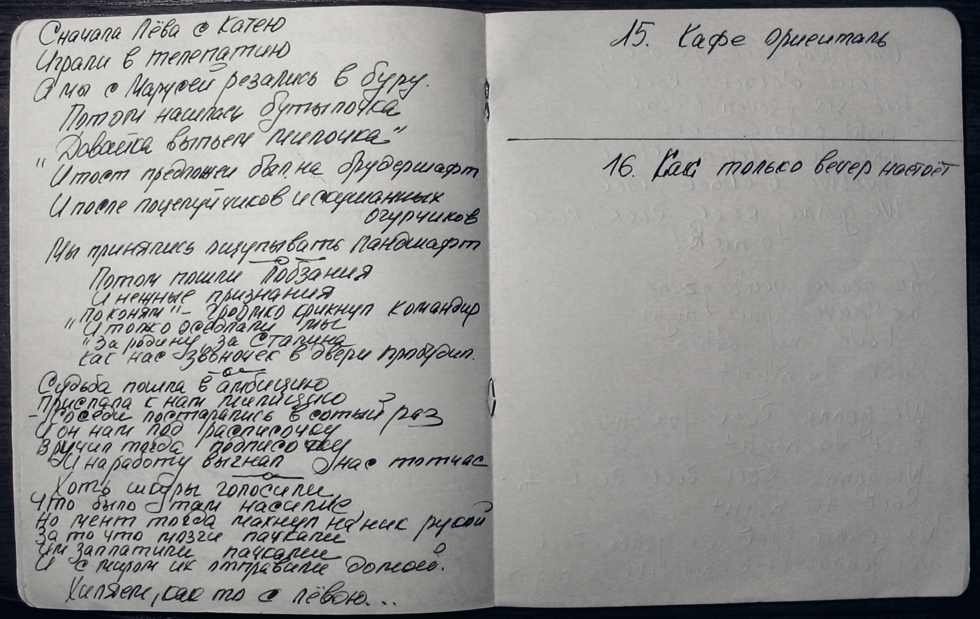 Сначала Лёва с Катею
Играли в телепатию
А мы с Марусей резались в буру.
Потом нашлась бутылочка
"Давайка выпьем милочка"
И тост предложен был на брудершафт
И после поцелуйчиков и скушанных
огурчиков
Мы принялись ощупывать ландшафт
Потом пошли лобзания
И нежные признания
"По коням" - громко крикнул командир
И только оседлали мы
"За родину, за Сталина
Как нас звоночек в двери пробудил.
Судьба пошла в амбицию
Прислала к нам милицию
- Соседи постарались в сотый раз
И он нам под расписочку
Вручил тогда подписочку
И на работу выгнал нас тотчас
Хоть шкуры голосили
Что было там насилие
Но мент тогда махнул на них рукой
За то что мозги пачкали
Им заплатили пачками
И с миром их отправили домой.
Хиляем, как то с Лёвою...
15. Кафе Ориенталь
16. Как только вечер настоёт